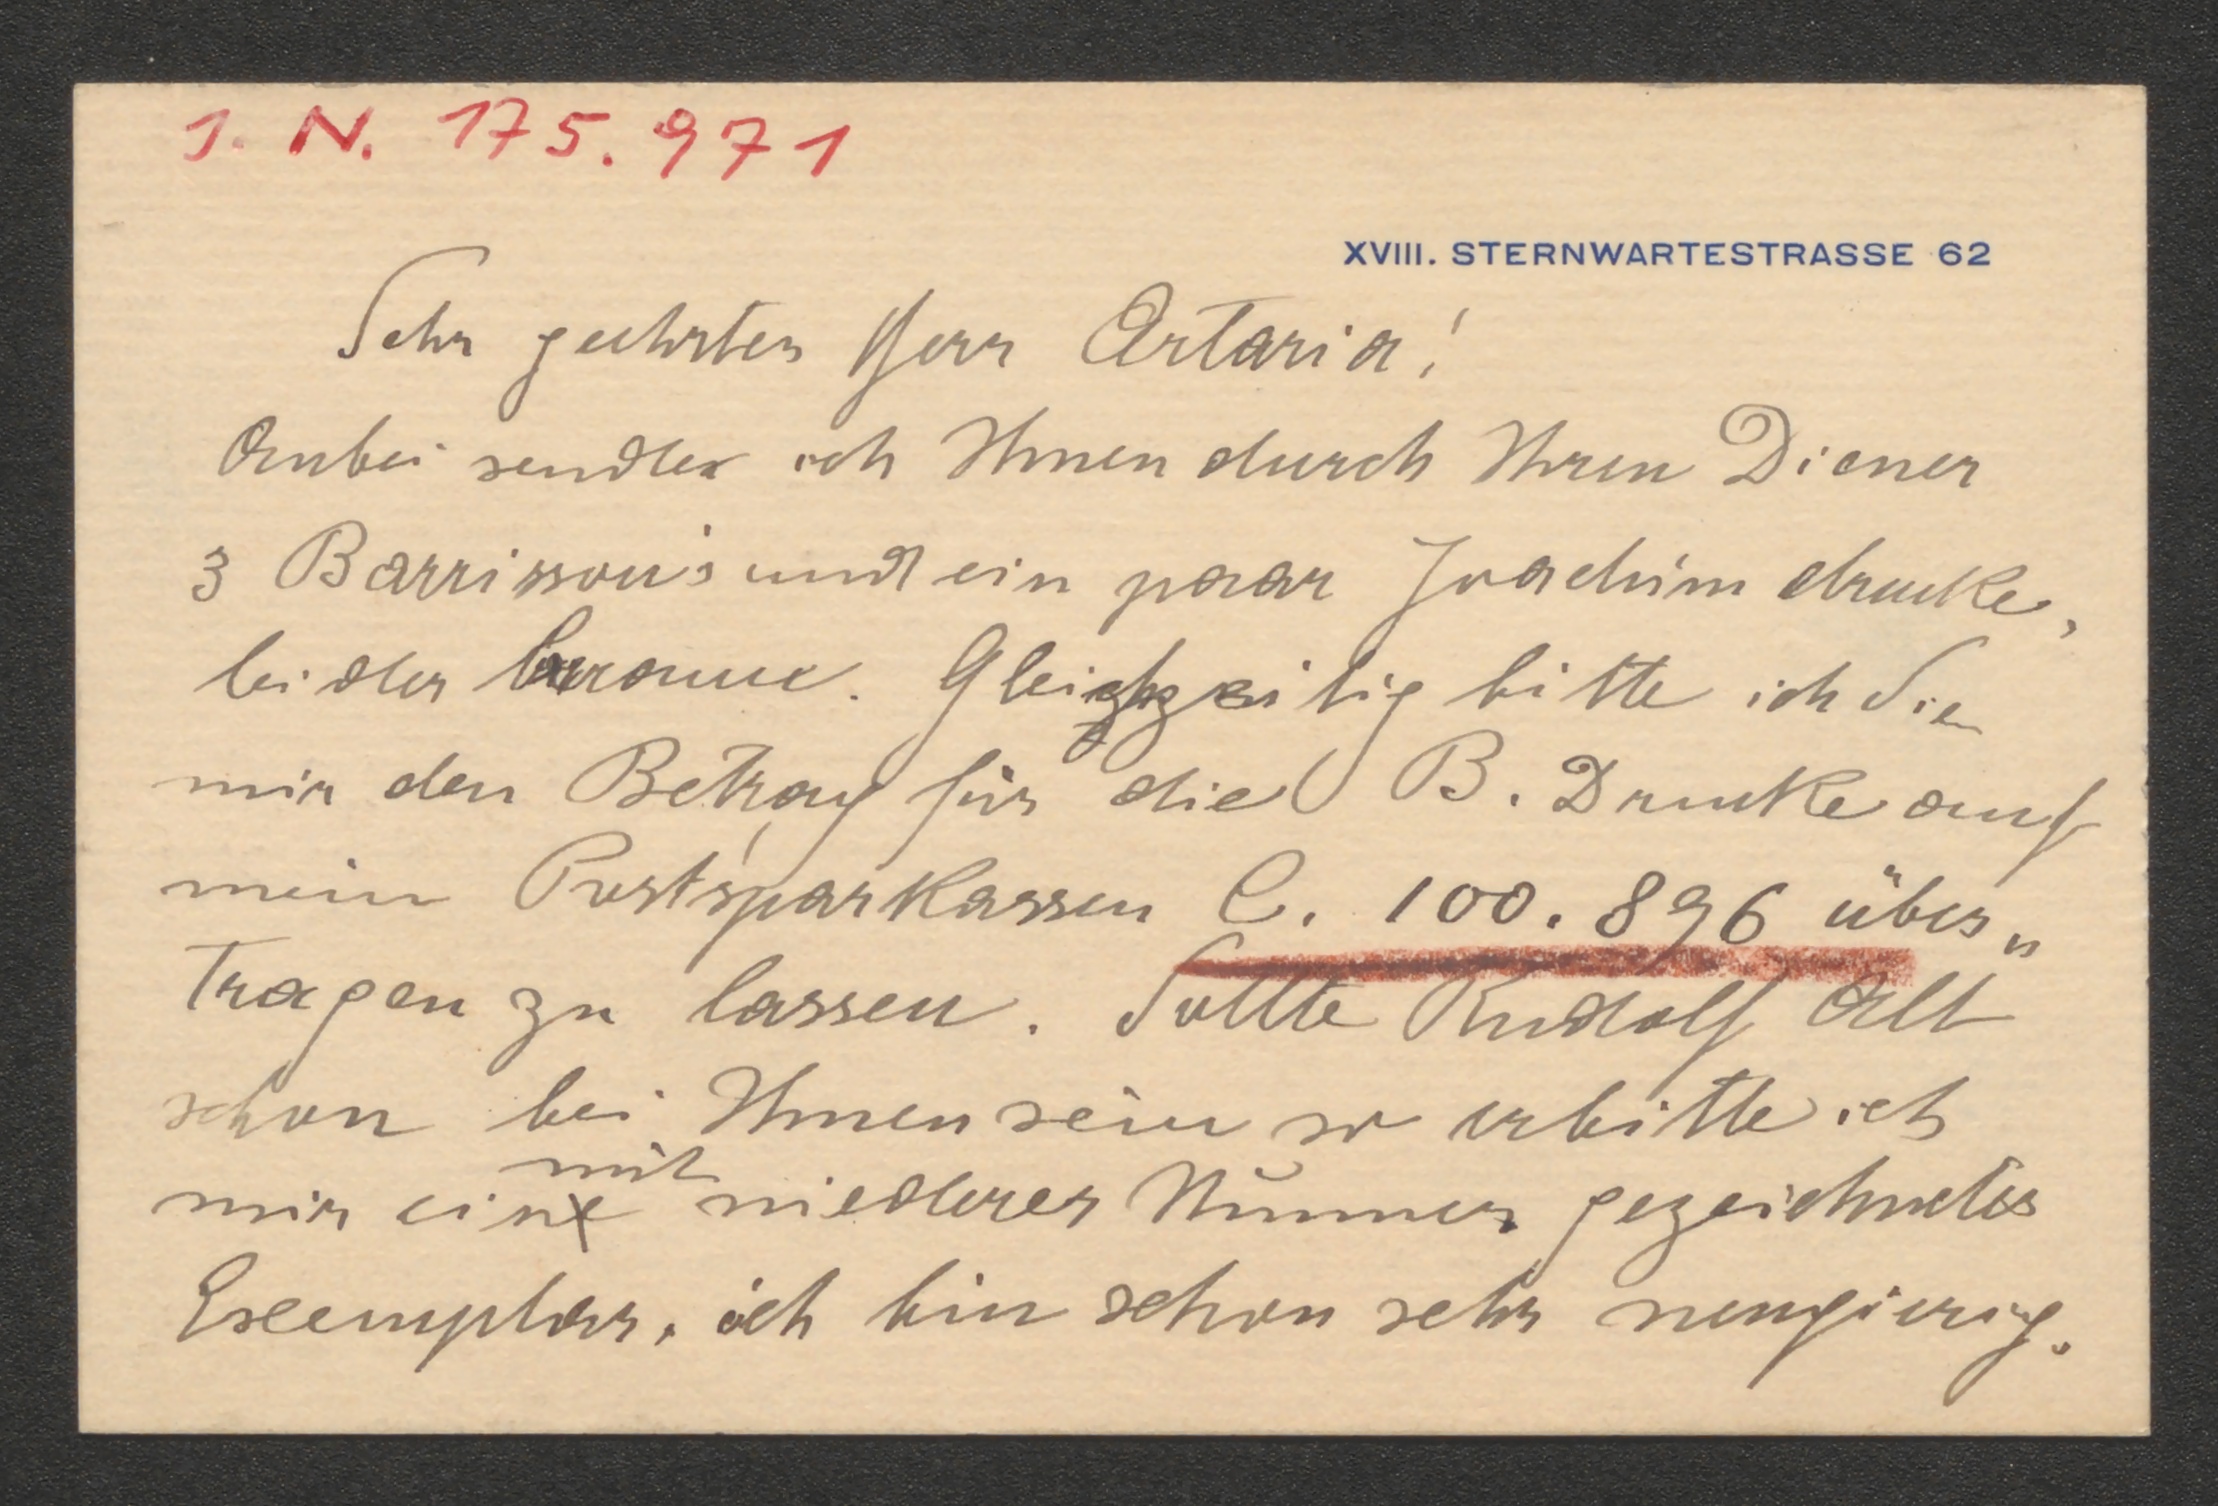 J. N. 175.971
XVIII. STERNWARTESTRASSE 62
Sehr geehrter Herr Artaria!
Anbei sende ich Ihnen durch Ihren Diener
3 Barrisson's und ein paar Joachim drucke,
leider braune. Gleichzeitig bitte ich Sie
mir den Betrag für die B. Drucke auf
mein Postsparkassen C. 100.896 über„
tragen zu lassen. Sollte Rudolf Alt
schon bei Ihnen sein so erbitte ich
mir ein mit niederer Nummer gezeichnetes
Exemplar, ich bin schon sehr neugierig.